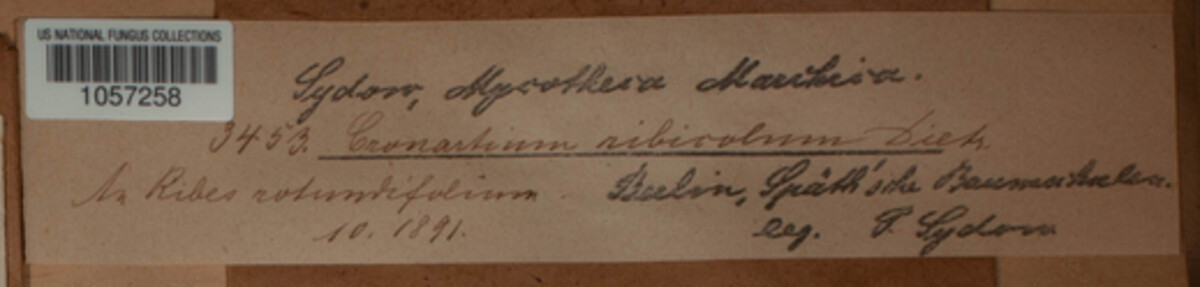 US NATIONAL FUNGUS COLLECTIONS
1057258
Sydow, Mycotheca Marchica.
3453. Cronartium ribicolum Dietr.
An Ribes rotundifolium
Berlin, Späth'sche Baumschulen.
10. 1891.
leg. P. Sydow